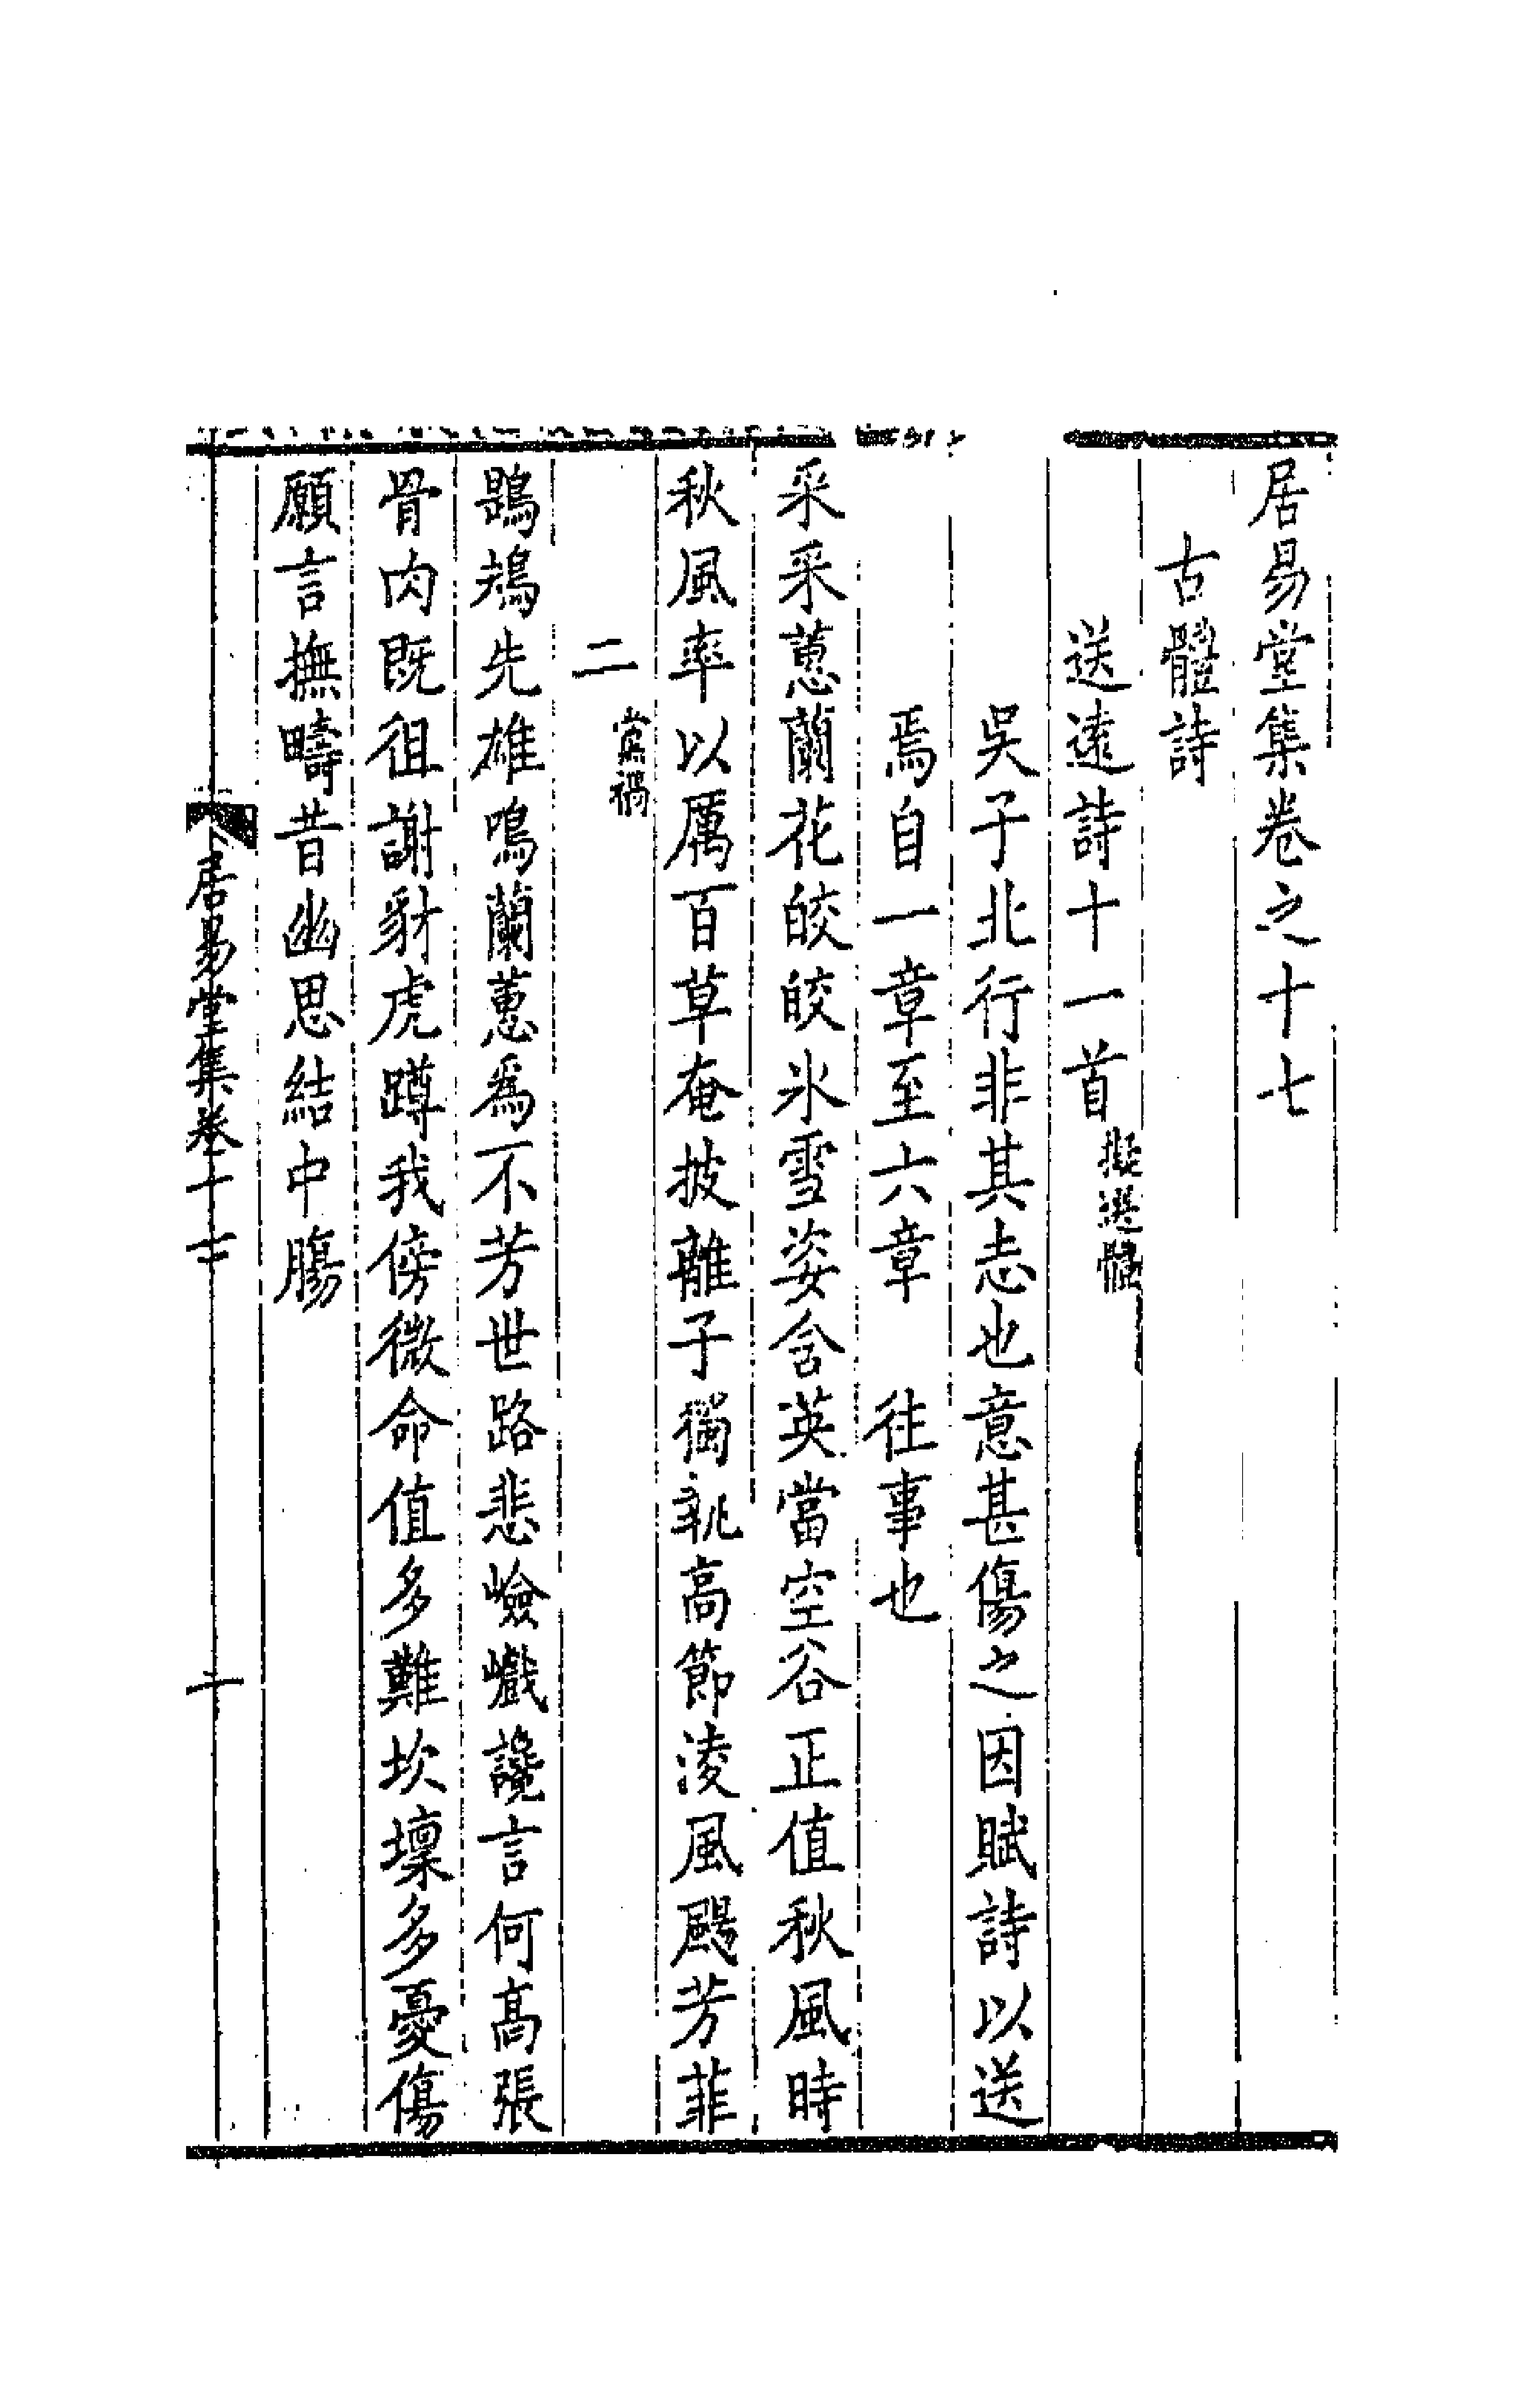 居易堂集卷之十七
古體詩
送遠詩十一首擬選體
吳子北行非其志也意甚傷之因賦詩以送
焉自一章至六章　往事也
采采蕙蘭花皎皎氷雪姿含英當空谷正值秋風時
秋風率以厲百草奄披離子獨執高節淩風颺芳菲
二黨禍
鶗鴂先雄鳴蘭蕙為不芳世路悲嶮巇讒言何高張
骨肉既徂謝豺虎蹲我傍微命值多難坎壈多憂傷
願言撫疇昔幽思結中腸
居易堂集卷十七
一